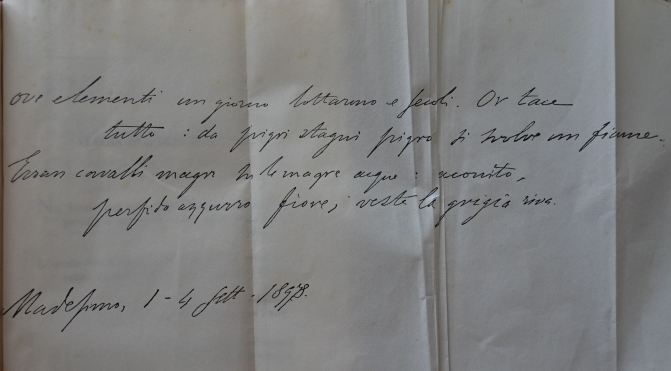 ove elementi un giorno lottarono e secoli. Or tace
tutto : da pigri stagni pigro si svolve un fiume.
Erran cavalli magri su le magre acque : aconito,
perfido azzurro fiore, veste la grigia riva.
Madesimo, 1 - 4 sett. 1898.